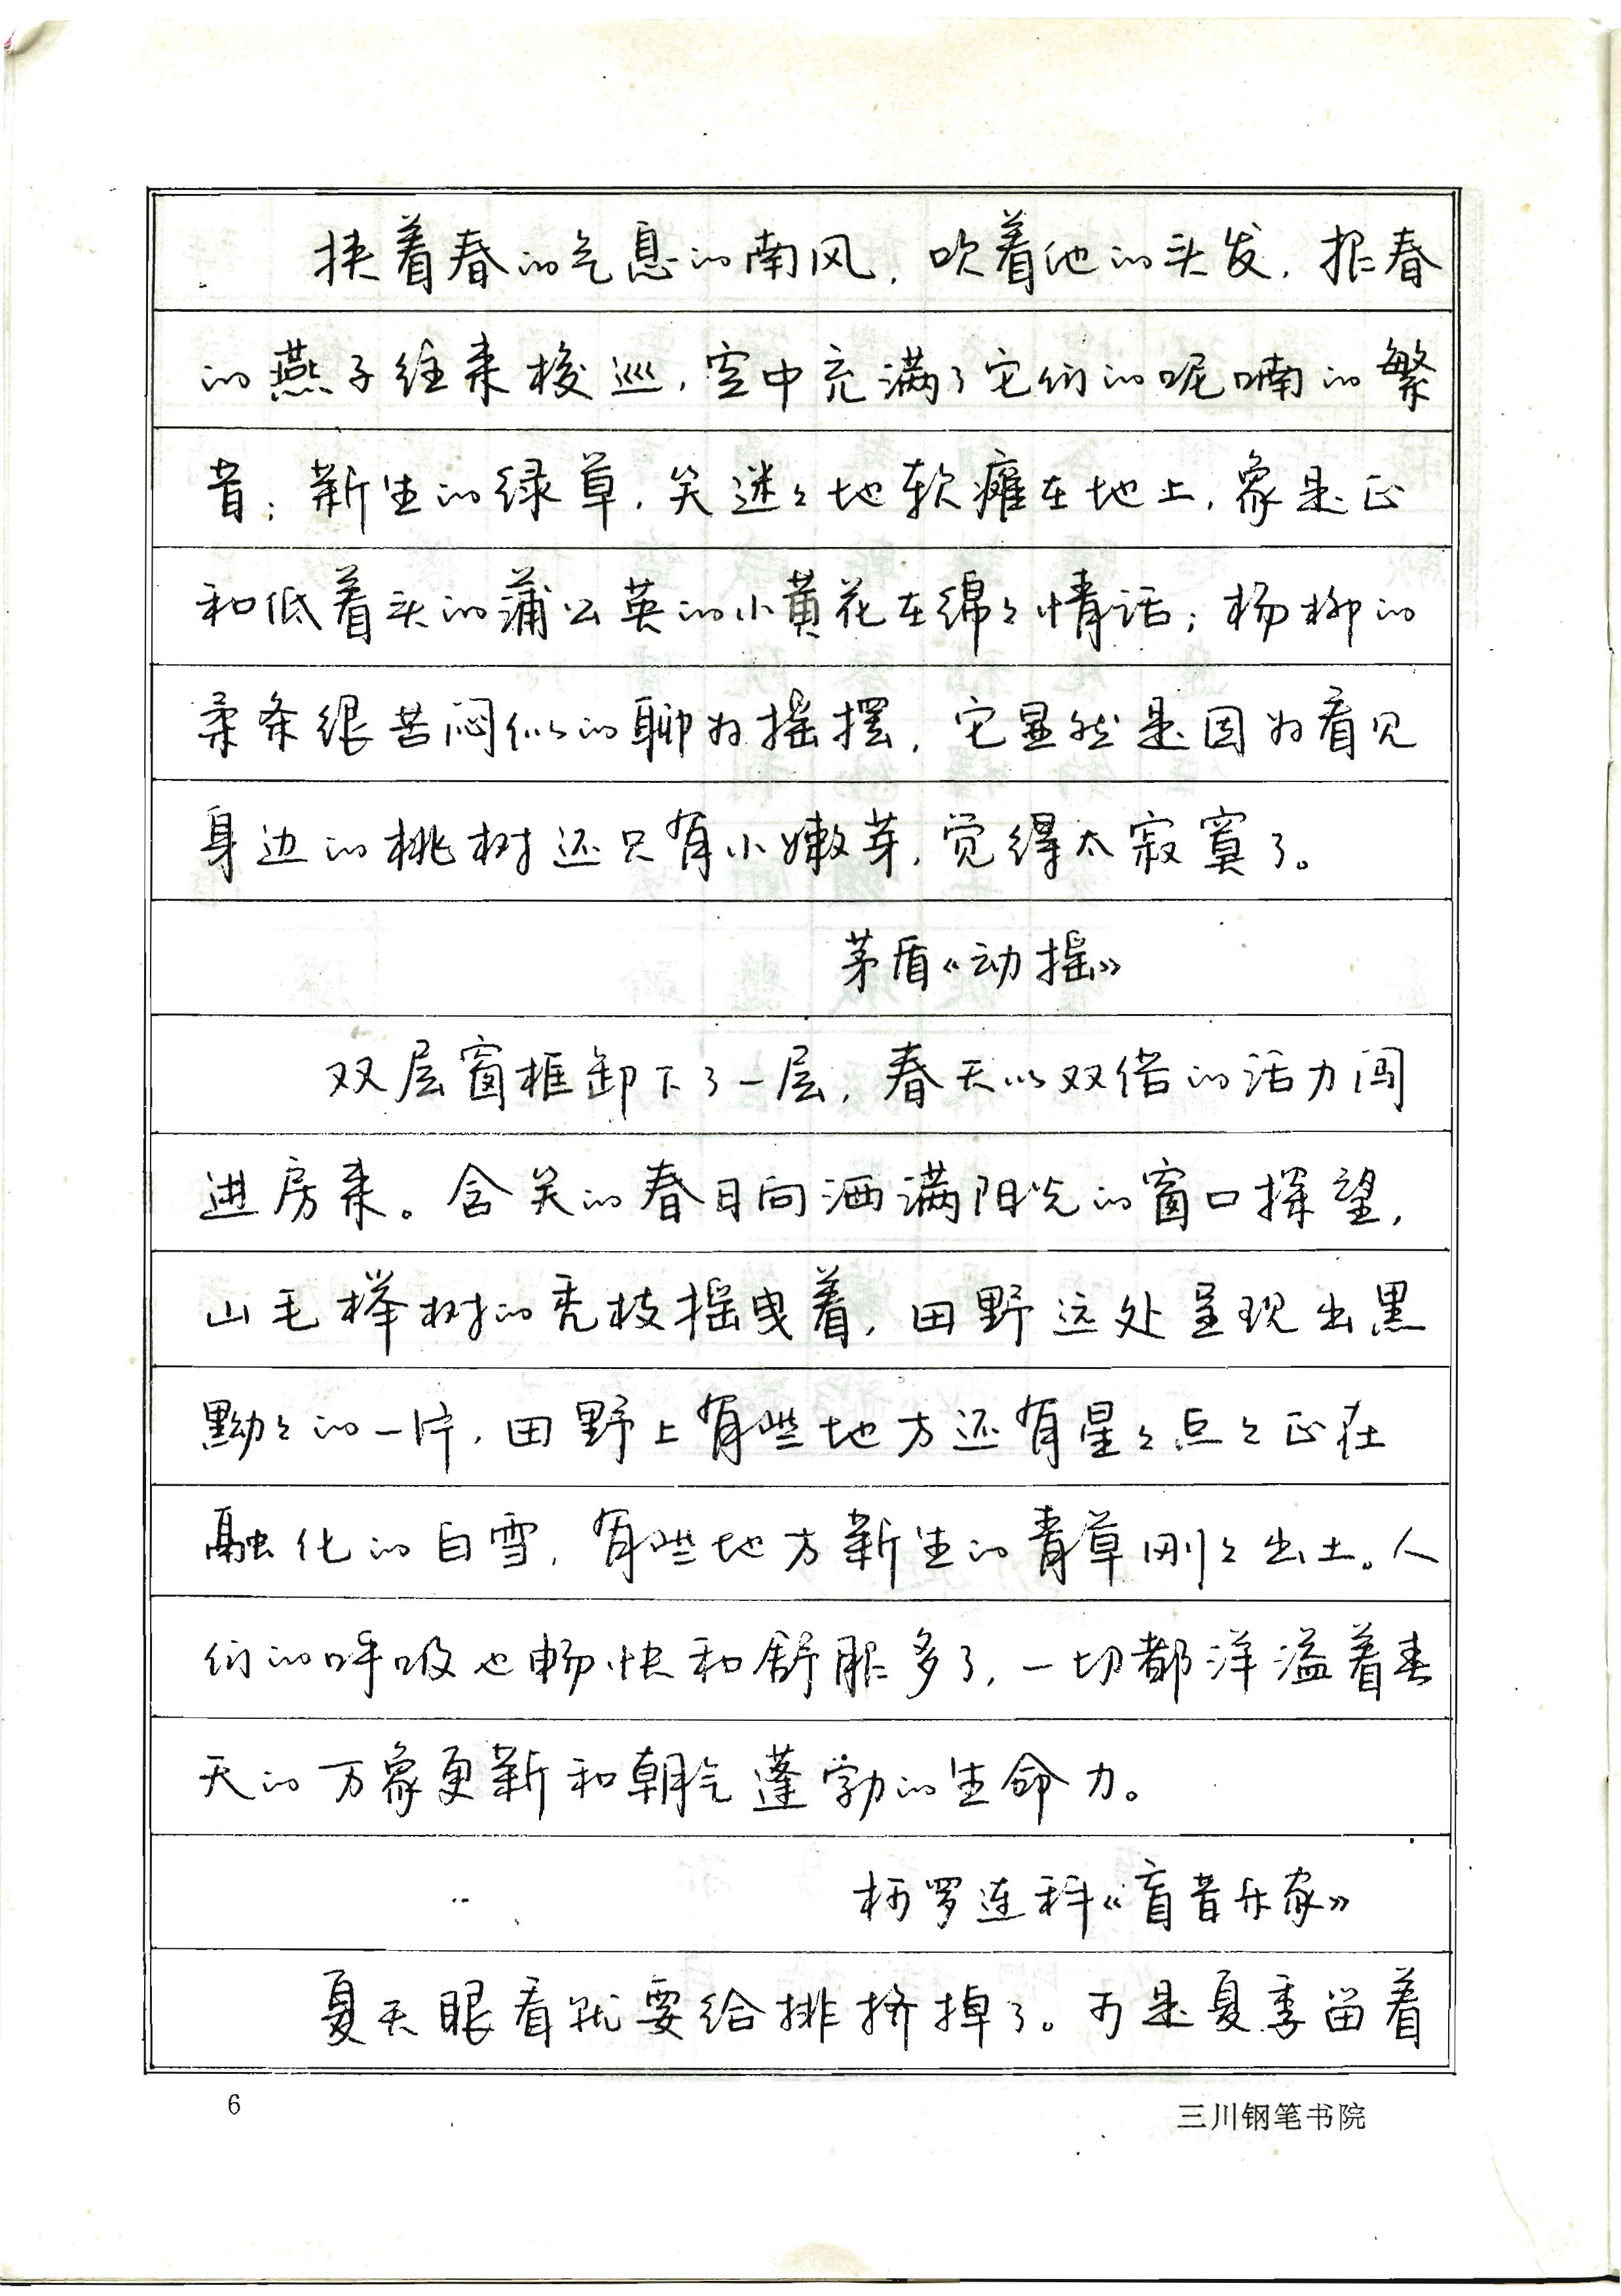 挟着春的气息的南风，吹着他的头发，报春
的燕子往来梭巡，空中充满了它们的呢喃的繁
音；新生的绿草，笑迷々地软瘫在地上，象是正
和低着头的蒲公英的小黄花在绵々情话；杨柳的
柔条很苦闷似的聊为摇摆，它显然是因为看见
身边的桃树还只有小嫩芽，觉得太寂寞了。
茅盾《动摇》
双层窗框卸下了一层，春天以双倍的活力闯
进房来。含笑的春日向洒满阳光的窗口探望，
山毛榉树的秃枝摇曳着，田野远处呈现出黑
黝々的一片，田野上有些地方还有星々点々正在
融化的白雪，有些地方新生的青草刚々出土。人
们的呼吸也畅快和舒服多了，一切都洋溢着春
天的万象更新和朝气蓬勃的生命力。
柯罗连科《盲音乐家》
夏天眼看就要给排挤掉了。可是夏季留着
6
三川钢笔书院